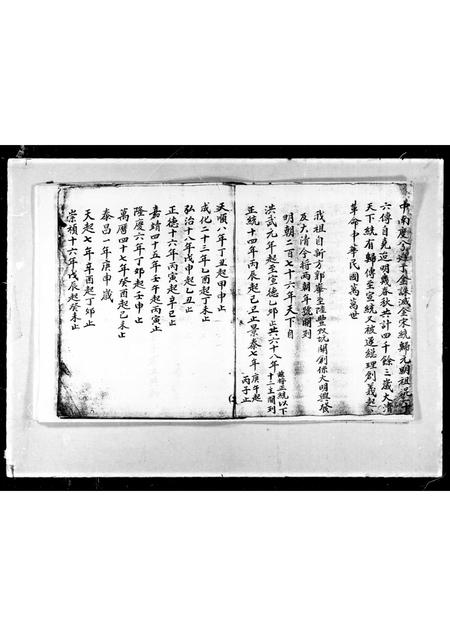 六傳自堯迄明幾春秋共計四千餘三歲大清
天下統有歸傳至宣統又被逆總理創義起
革命中華民國萬萬世
我祖自新方耶華至陸豐坎坑開創係大明興發
及大清今將兩朝年號開列
明朝二百七十六年天下自
洪武元年起至宣德乙卯止共六十八年十一主開列
茲將正統以下
正統十四年丙辰起己巳止景泰七年庚午起
丙子止
天順八年丁丑起甲申止
成化二十三年乙酉起丁未止
弘治十八年戊申起乙丑止
正德十六年丙寅起辛巳止
嘉靖四十五年壬午起丙寅止
隆慶六年丁卯起壬申止
萬曆四十七年癸酉起己未止
泰昌一年庚申歲
天起七年辛酉起丁卯止
崇禎十六年戊辰起癸未止